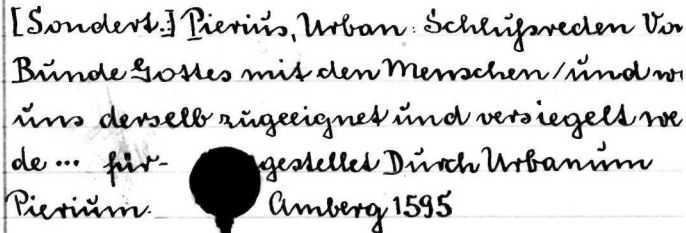 [Sondert.] Pierius, Urban: Schlußreden Vo
Bunde Gottes mit den Menschen/und w
uns derselb zugeeignet und versiegelt we
de... für- gestellet Durch Urbanum
Pierium. Amberg 1595